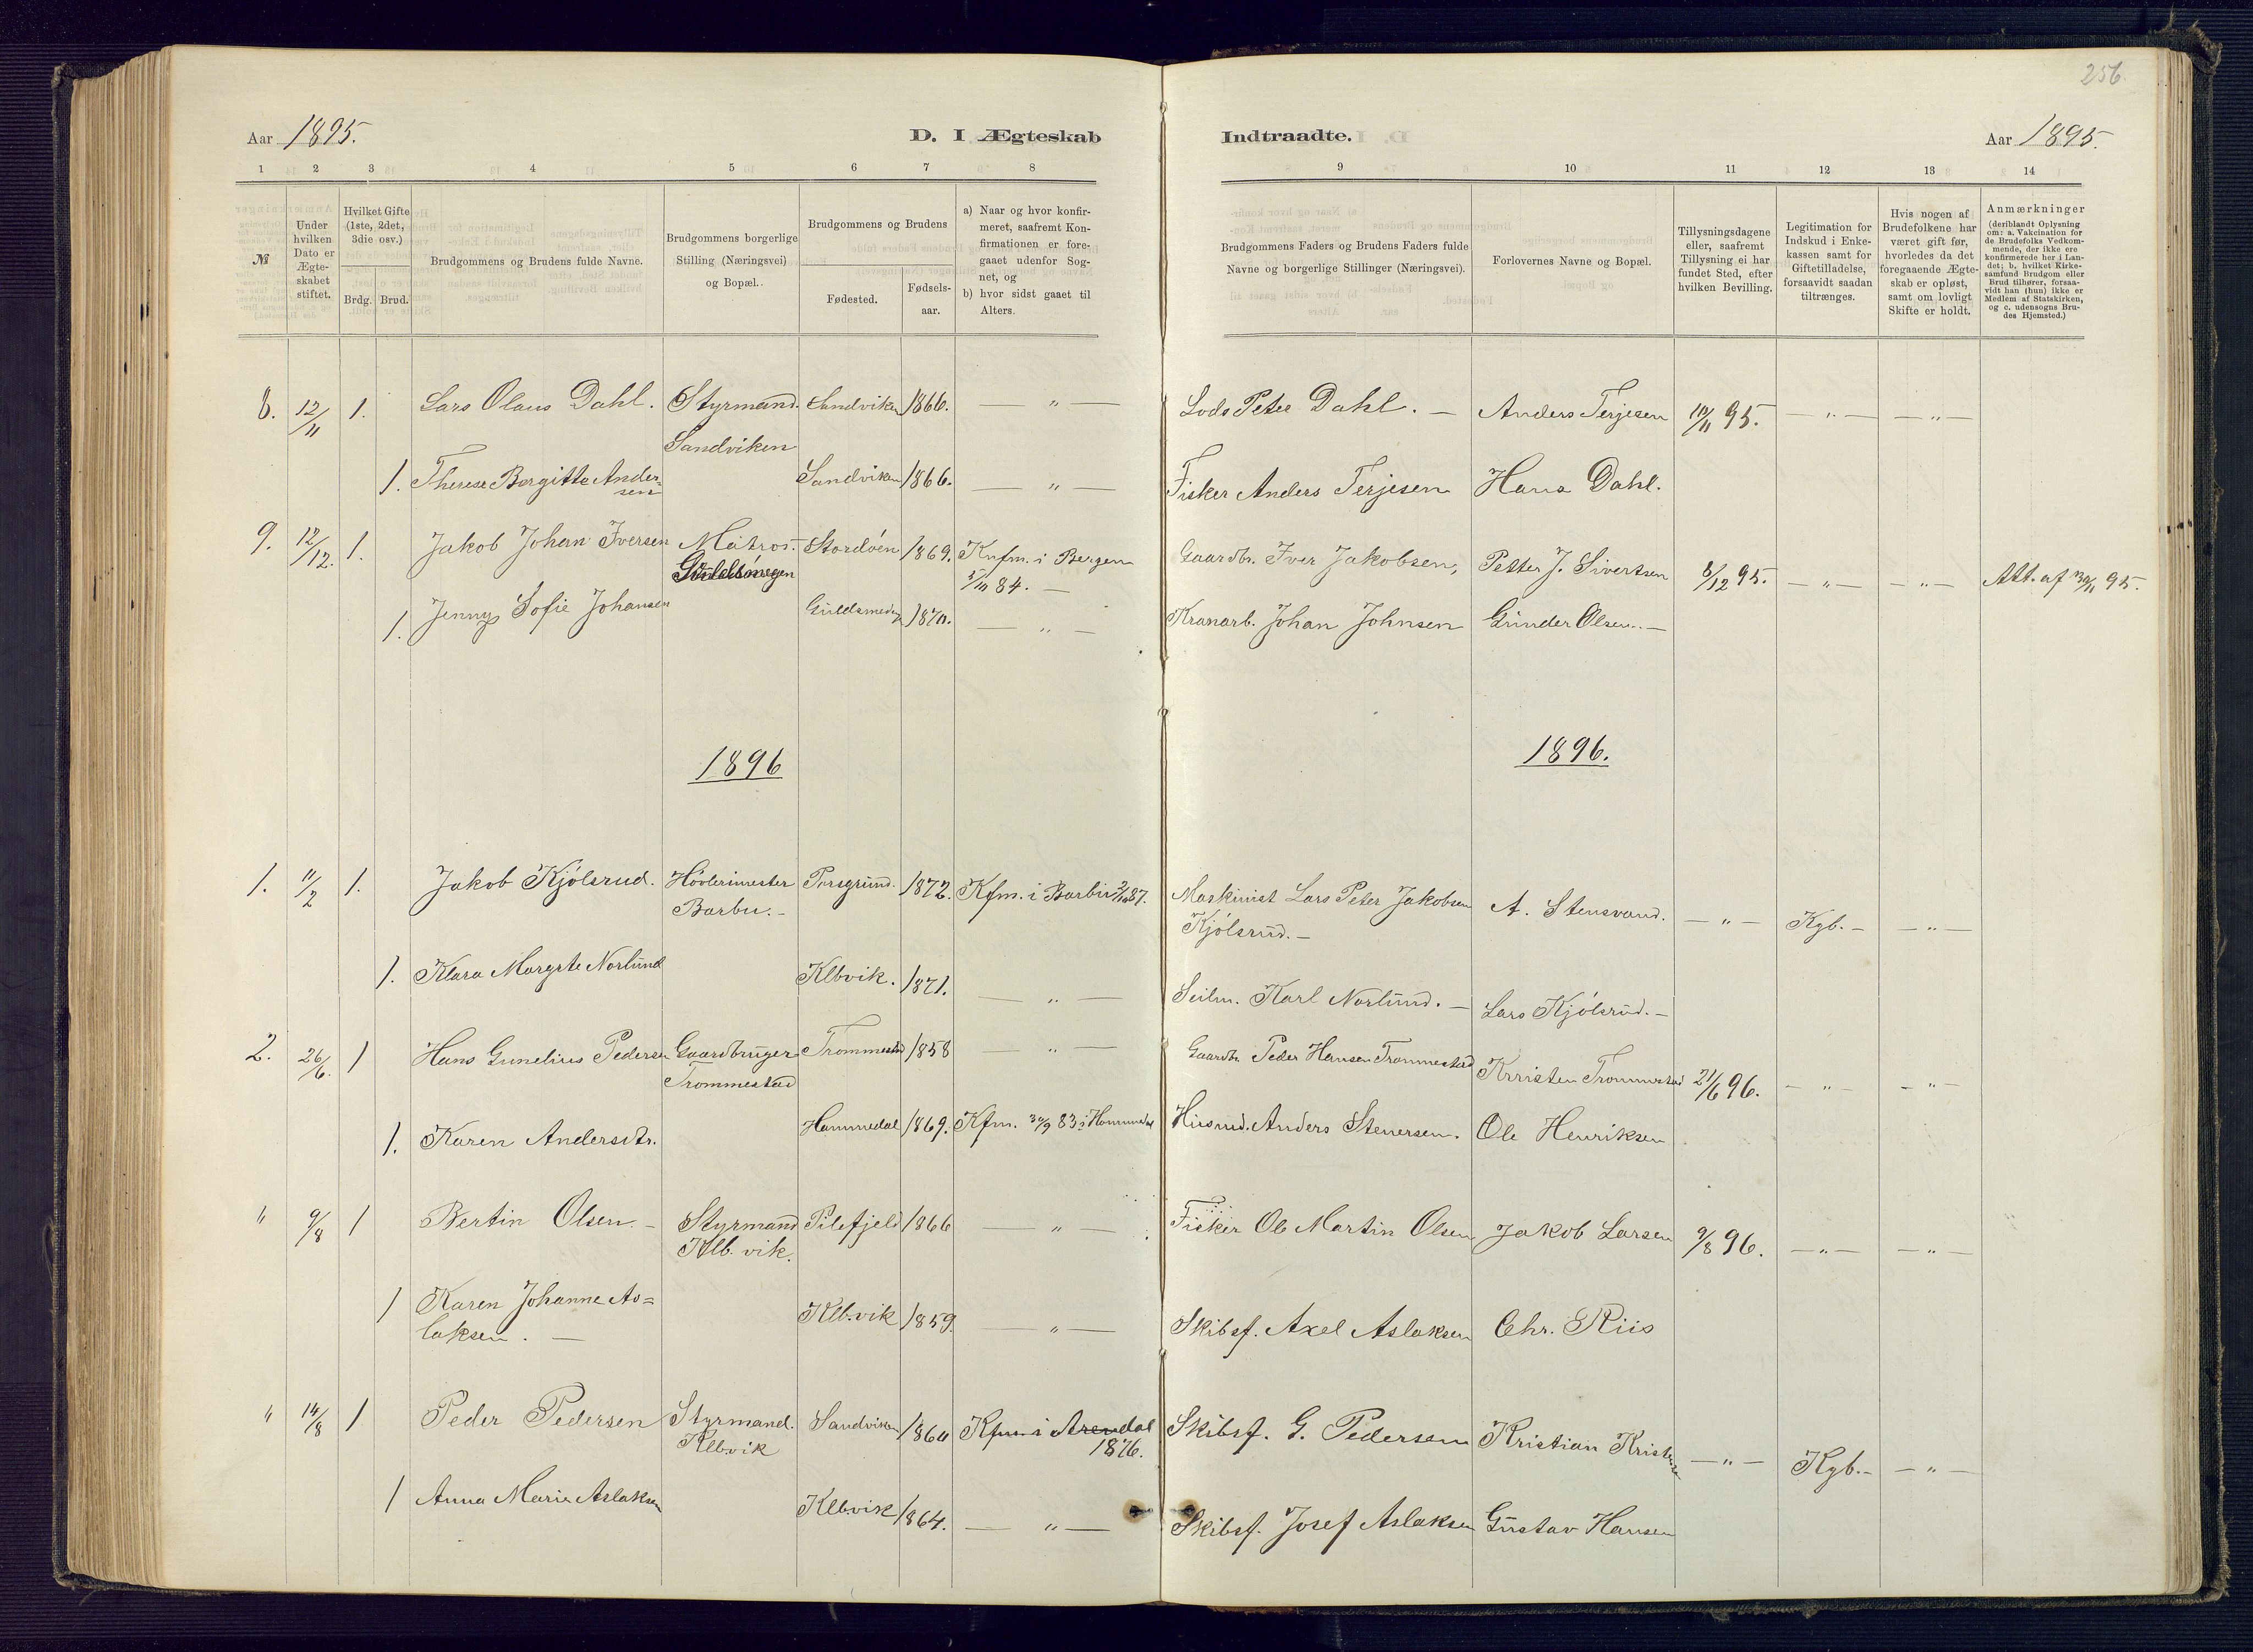 256.
Aar 1895.
D. I Ægteskab
Indtraadte.
Aar 1895.
1 2 3 4 5 6 7 8
9 10 11 12 13 14
№
Under
hvilken
Dato er
Ægte-
skabet
stiftet.
Hvilket Gifte
(1ste, 2det,
3die osv.)
Brdg. Brud.
Brudgommens og Brudens fulde Navne.
Brudgommens borgerlige
Stilling (Næringsvei)
og Bopæl.
Brudgommens og Brudens
Fødested.
Fødsels-
aar.
a) Naar og hvor konfir-
meret, saafremt Kon-
firmationen er fore-
gaaet udenfor Sog-
net, og
b) hvor sidst gaaet til
Alters.
Brudgommens Faders og Brudens Faders fulde
Navne og borgerlige Stillinger (Næringsvei).
Forlovernes Navne og Bopæl.
Tillysningsdagene
eller, saafremt
Tillysning ei har
fundet Sted, efter
hvilken Bevilling.
Legitimation for
Indskud i Enke-
kassen samt for
Giftetilladelse,
forsaavidt saadan
tiltrænges.
Hvis nogen af
Brudefolkene har
været gift før,
hvorledes da det
foregaaende Ægte-
skab er opløst,
samt om lovligt
Skifte er holdt.
Anmærkninger
(deriblandt Oplysning
om: a. Vakcination for
de Brudefolks Vedkom-
mende, der ikke ere
konfirmerede her i Lan-
det; b, hvilket Kirke-
samfund Brudgom eller
Brud tilhører, forsaa-
vidt han (hun) ikke er
Medlem af Statskirken,
og c. udensogns Bru-
des Hjemsted.)
8. 12/11 1. Lars Olaus Dahl. Styrmand. Sandviken 1866. — „ — Lods Peter Dahl. — Anders Terjesen 10/11 95. — „ — — „ —
Sandviken
1. Therese Borgitte Ander=
sen Sandviken 1866. — „ — Fisker Anders Terjesen Hans Dahl.
9. 12/12. 1. Jakob Johan Iversen Matros. Stordöen 1869. Knfm. i Bergen Gaardbr. Iver Jakobsen, Petter J. Sivertsen 8/12 95. — „ — — „ — Att. af 30/11 95.
5/10 84. —
1. Jenny Sofie Johansen Guldsmedg 1870. — „ — Kranarb. Johan Johnsen Gunder Olsen. —
1896
1896.
1. 11/2 1. Jakob Kjölsrud. Hövlerimester Porsgrund. 1872. Kfm. i Barbu 2/10 87. Maskinist Lars Peter Jakobsen A. Stensvand. — „ — Kgb. — — „ —
Barbu. — Kjölsrud. —
1. Klara Margrte Norlund Klbvik. 1871. — „ — Seilm. Karl Norlund. — Lars Kjölsrud. —
2. 26/6. 1 Hans Gunelius Pedersen Gaardbruger Trommestad 1858 — „ — Gaardbr. Peder Hansen Trommestad Krristen Trommestad 21/6 96. — „ — — „ —
Trommestad
1. Karen Andersdtr. Hommedal 1869. Kfm. 30/9 83 i Hommedal Husmd. Anders Stenersen. Ole Henriksen
„ 9/8 1 Bertin Olsen. — Styrmand Pilefjeld 1866 — „ — Fisker Ole Martin Olsen Jakob Larsen 9/8 96. — „ — — „ —
Klb. vik.
1 Karen Johanne As=
laksen. — Klb.vik 1859. — „ — Skibsf. Axel Aslaksen Chr. Riis
„ 14/8 1 Peder Pedersen Styrmand. Sandviken 1860 Kfm. i Arendal Skibsf. G. Pedersen Kristian Kristensen — „ — Kgb. — — „ —
Klb.vik 1876.
1 Anna Marie Aslaksen Klb.vik 1864. — „ — Skibsf. Josef Aslaksen Gustav Hansen